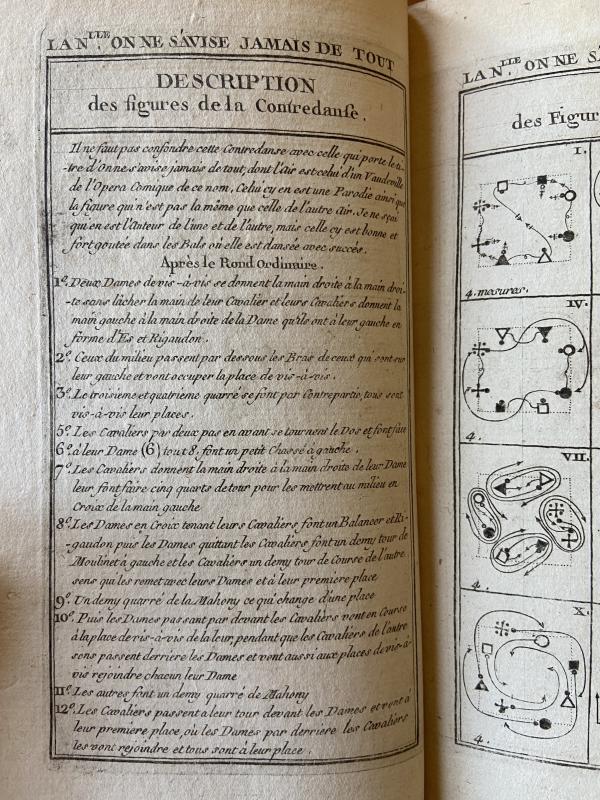 LA N.LLE ON NE S'AVISE JAMAIS DE TOUT
DESCRIPTION
des figures de la Contredanse.
Il ne faut pas confondre cette Contredanse avec celle qui porte le ti-
-tre d'On ne s'avise jamais de tout, dont l'Air est celui d'un Vaudeville
de l'Opera Comique de ce nom. Celui cy en est une Parodie ainsi que
la figure qui n'est pas la même que celle de l'autre air. Je ne sçai
qui en est l'Auteur de l'une et de l'autre, mais celle cy est bonne et
fort goutée dans les Bals où elle est dansée avec succés.
Après le Rond Ordinaire.
1.° Deux Dames de vis-à-vis se donnent la main droite à la main droi-
-te sans lâcher la main de leur Cavalier et leurs Cavaliers donnent la
main gauche à la main droite de la Dame qu'ils ont à leur gauche en
forme d'Es et Rigaudon.
2.° Ceux du milieu passent par dessous les Bras de ceux qui sont sur
leur gauche et vont occuper la place de vis-à-vis.
3.° Le troisieme et quatrieme quarré se font par Contrepartie, tous sont
vis-à-vis leur places.
5.° Les Cavaliers par deux pas en avant se tournent le Dos et font face
6.° à leur Dame (6) tout 8. font un petit Chassé à gauche.
7.° Les Cavaliers donnent la main droite à la main droite de leur Dame
leur font faire cinq quarts de tour pour les mettrent au milieu en
Croix de la main gauche
8.° Les Dames en Croix tenant leurs Cavaliers font un Balancer et Ri-
-gaudon puis les Dames quittant les Cavaliers font un demy tour de
Moulinet a gauche et les Cavaliers un demy tour de Course de l'autre
sens qui les remet avec leurs Dames et à leur premiere place
9.° Un demy quarré de la Mahony ce qui change d'une place
10.° Puis les Dames passant par devant les Cavaliers vont en Course
à la place de vis-à-vis de la leur, pendant que les Cavaliers de l'autre
sens passent derriere les Dames et vont aussi aux places de vis-à-
vis rejoindre chacun leur Dame
11.° Les autres font un demy quarré de Mahony
12.° Les Cavaliers passent a leur tour devant les Dames et vont à
leur premiere place, où les Dames par derriere les Cavaliers
les vont rejoindre et tous sont à leur place.
LA N.LLE ON NE S'A
des Figur
I.
4. mesures.
IV.
4.
VII.
4.
X.
4.